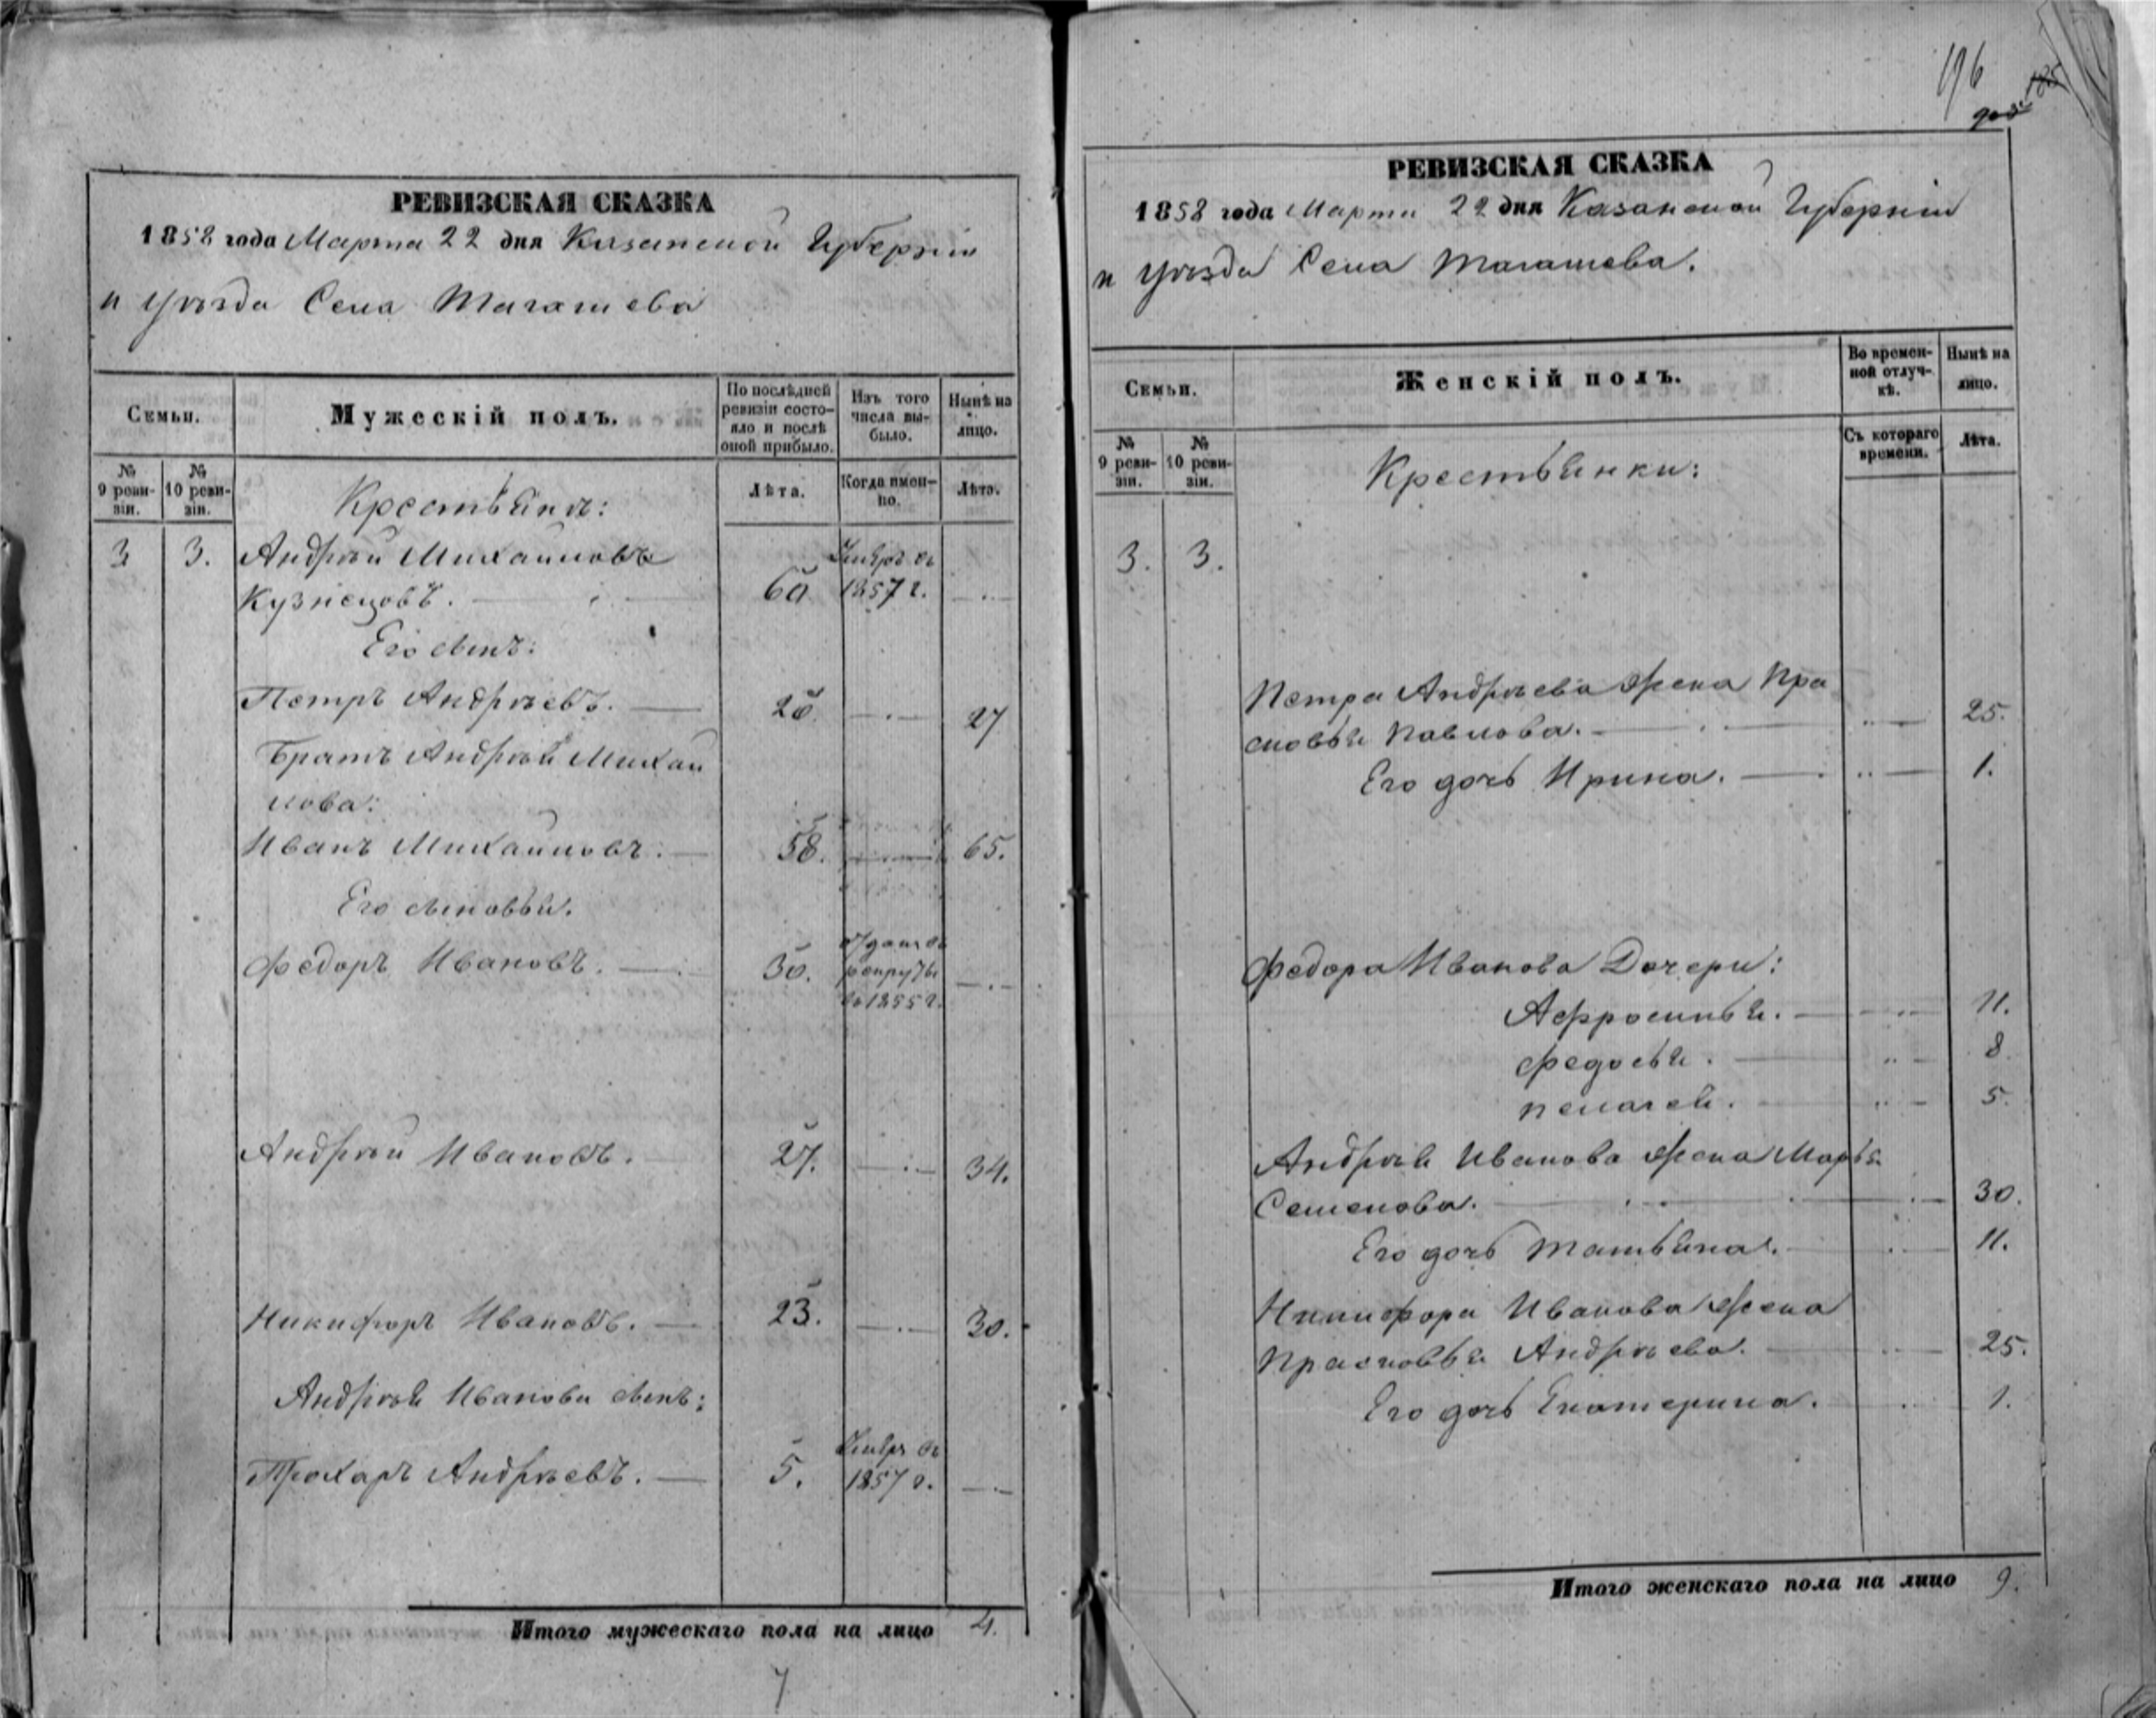 РЕВИЗСКАЯ СКАЗКА
1858 года Марта 22 дня Казанской Губерніи
и уѣзда Села Тагашева
Семьи.
Мужескій полъ.
По послѣдней ревизіи состояло и послѣ оной прибыло.
Изъ того числа выбыло.
Нынѣ на лицо.
№ 9 ревизіи.
№ 10 ревизіи.
Лѣта.
Когда именно.
Лѣта.
Крестьянъ:
3 3. Андрѣй Михайловъ
Кузнецовъ. 60 1857 г.
Его сынъ:
Петръ Андрѣевъ. 20. 27
Братъ Андрѣя Михай
лова:
Иванъ Михайловъ. 58. 65.
Его сыновья.
Федоръ Ивановъ. 30. отданъ въ рекруты въ 1855 г.
Андрѣй Ивановъ. 27. 34.
Никифоръ Ивановъ. 23. 30.
Андрѣя Иванова сынъ:
Прохаръ Андрѣевъ. 5. 1857 г.
Итого мужескаго пола на лицо 4.
7
196
РЕВИЗСКАЯ СКАЗКА
1858 года Марта 22 дня Казанской Губерніи
и уѣзда Села Тагашева.
Семьи.
Женскій полъ.
Во временной отлучкѣ.
Нынѣ на лицо.
№ 9 ревизіи.
№ 10 ревизіи.
Съ котораго времени.
Лѣта.
Крестьянки:
3. 3.
Петра Андрѣева жена Пра
сковья Павлова. 25.
Его дочь Ирина. 1.
Федора Иванова Дочери:
Афросинья. 11.
Федосья. 8.
Пелагея. 5.
Андрѣя Иванова жена Марья
Семенова. 30.
Его дочь Татьяна. 11.
Никифора Иванова жена
Прасковья Андрѣева. 25.
Его дочь Екатерина. 1.
Итого женскаго пола на лицо 9.